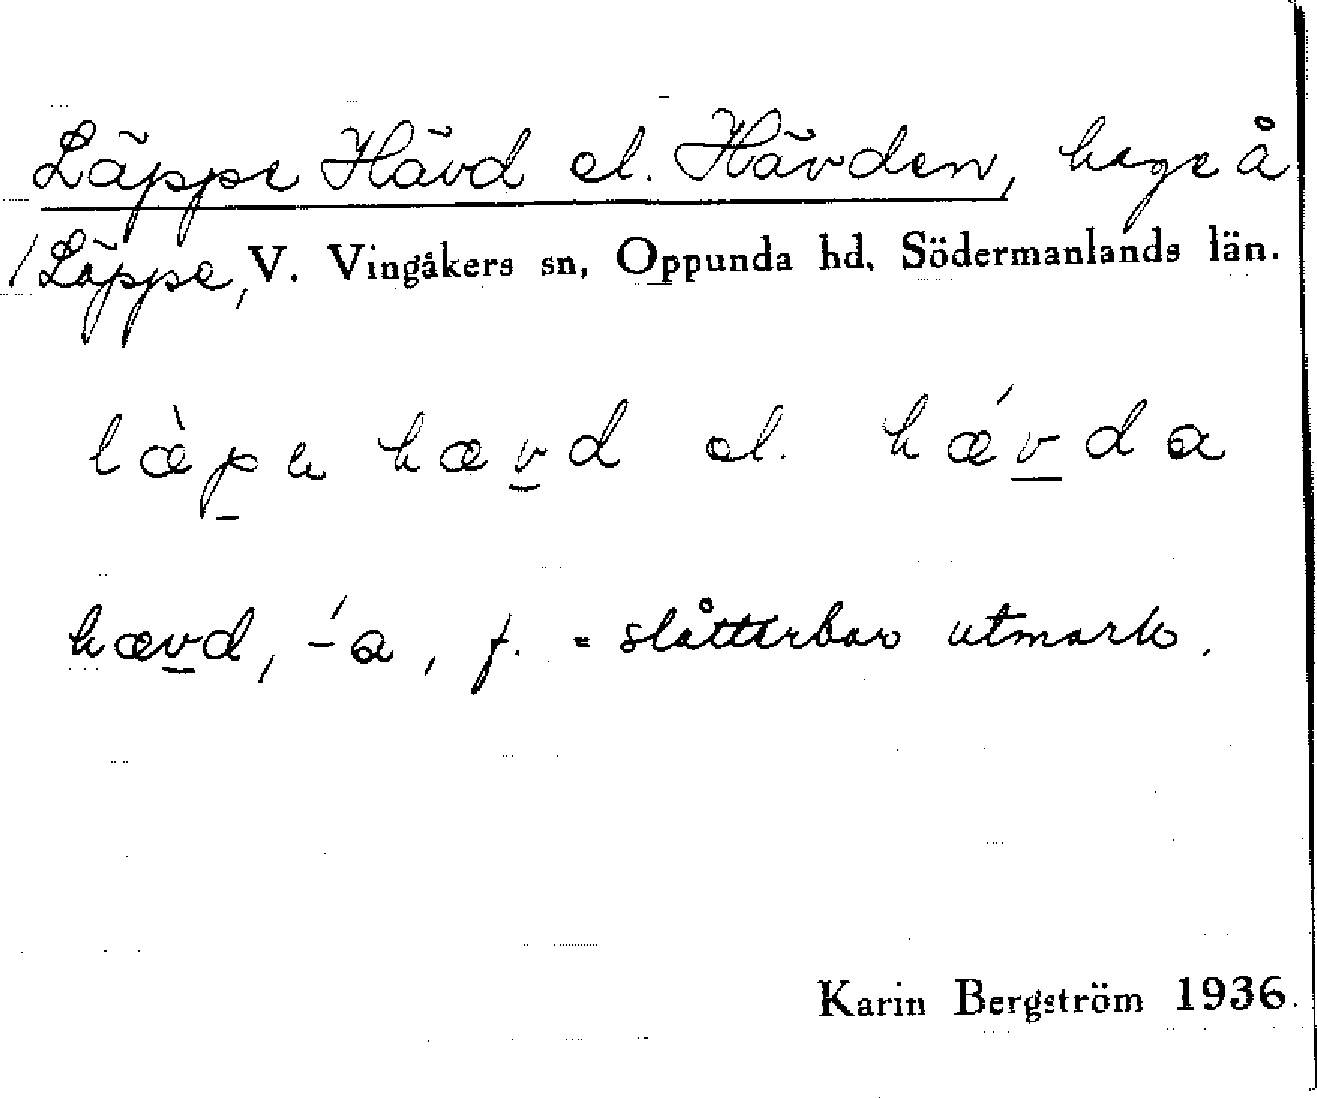 Läppe Hävd el. Hävden, hage å
/ Läppe, V. Vingåkers sn, Oppunda hd, Södermanlands län.
læ̀pe hævd el. hǽvda
hævd, -́a, f. = slåtterbar utmark.
Karin Bergström 1936.